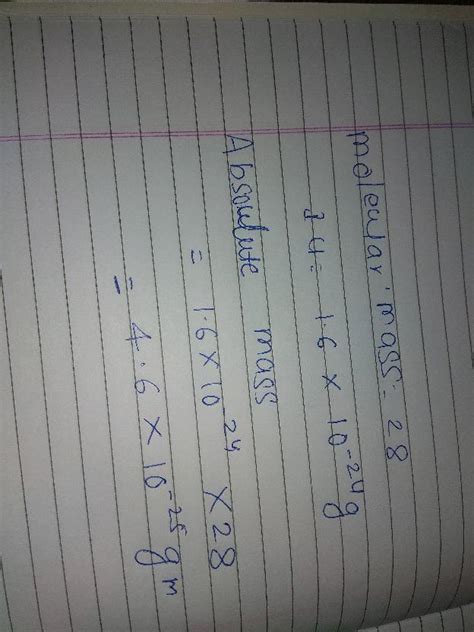 molecular mass: 28
24 = 1.6 × 10⁻²⁴g
Absoulute mass
= 1.6×10⁻²⁴ ×28
= 4.6 × 10⁻²⁵gm